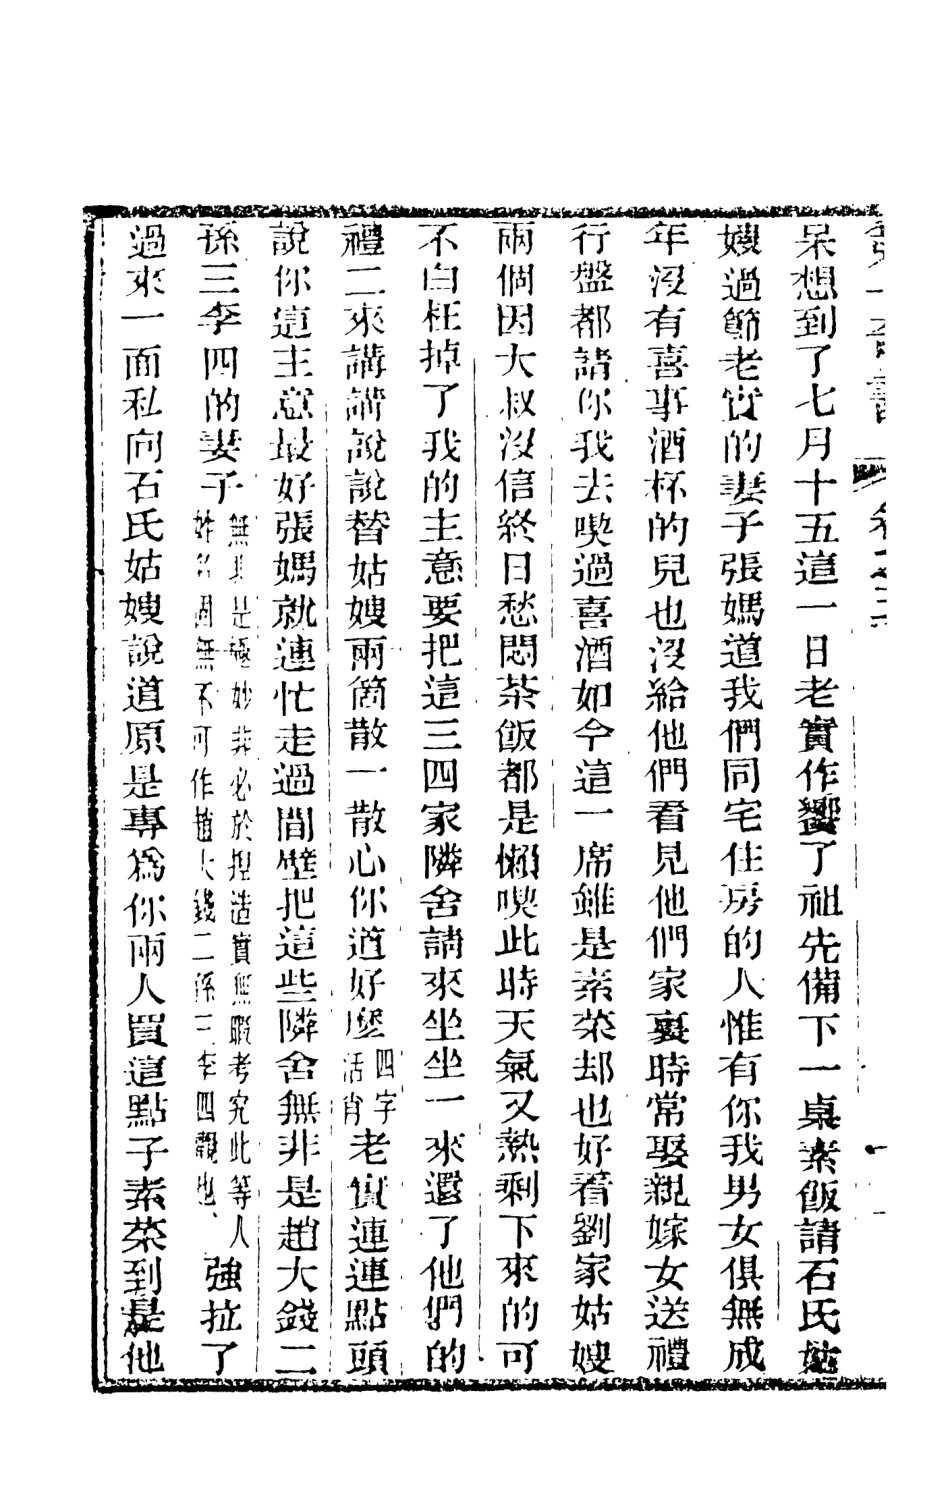 呆想到了七月十五這一日老實作饗了祖先備下一桌素飯請石氏姑
嫂過節老實的妻子張媽道我們同宅住房的人惟有你我男女俱無成
年沒有喜事酒杯的兒也沒給他們看見他們家裏時常娶親嫁女送禮
行盤都請你我去喫過喜酒如今這一席雖是素菜却也好看劉家姑嫂
兩個因大叔沒信終日愁悶茶飯都是懶喫此時天氣又熱剩下來的可
不白枉掉了我的主意要把這三四家隣舍請來坐坐一來還了他們的
禮二來講講說說替姑嫂兩箇散一散心你道好麼四字活肖老實連連點頭
說你這主意最好張媽就連忙走過間壁把這些隣舍無非是趙大錢二
孫三李四的妻子無非是極妙非必於捏造實無暇考究此等人姓名固無不可作趙大錢二孫三李四觀也強拉了
過來一面私向石氏姑嫂說道原是專為你兩人買這點子素菜到是他
卷之二